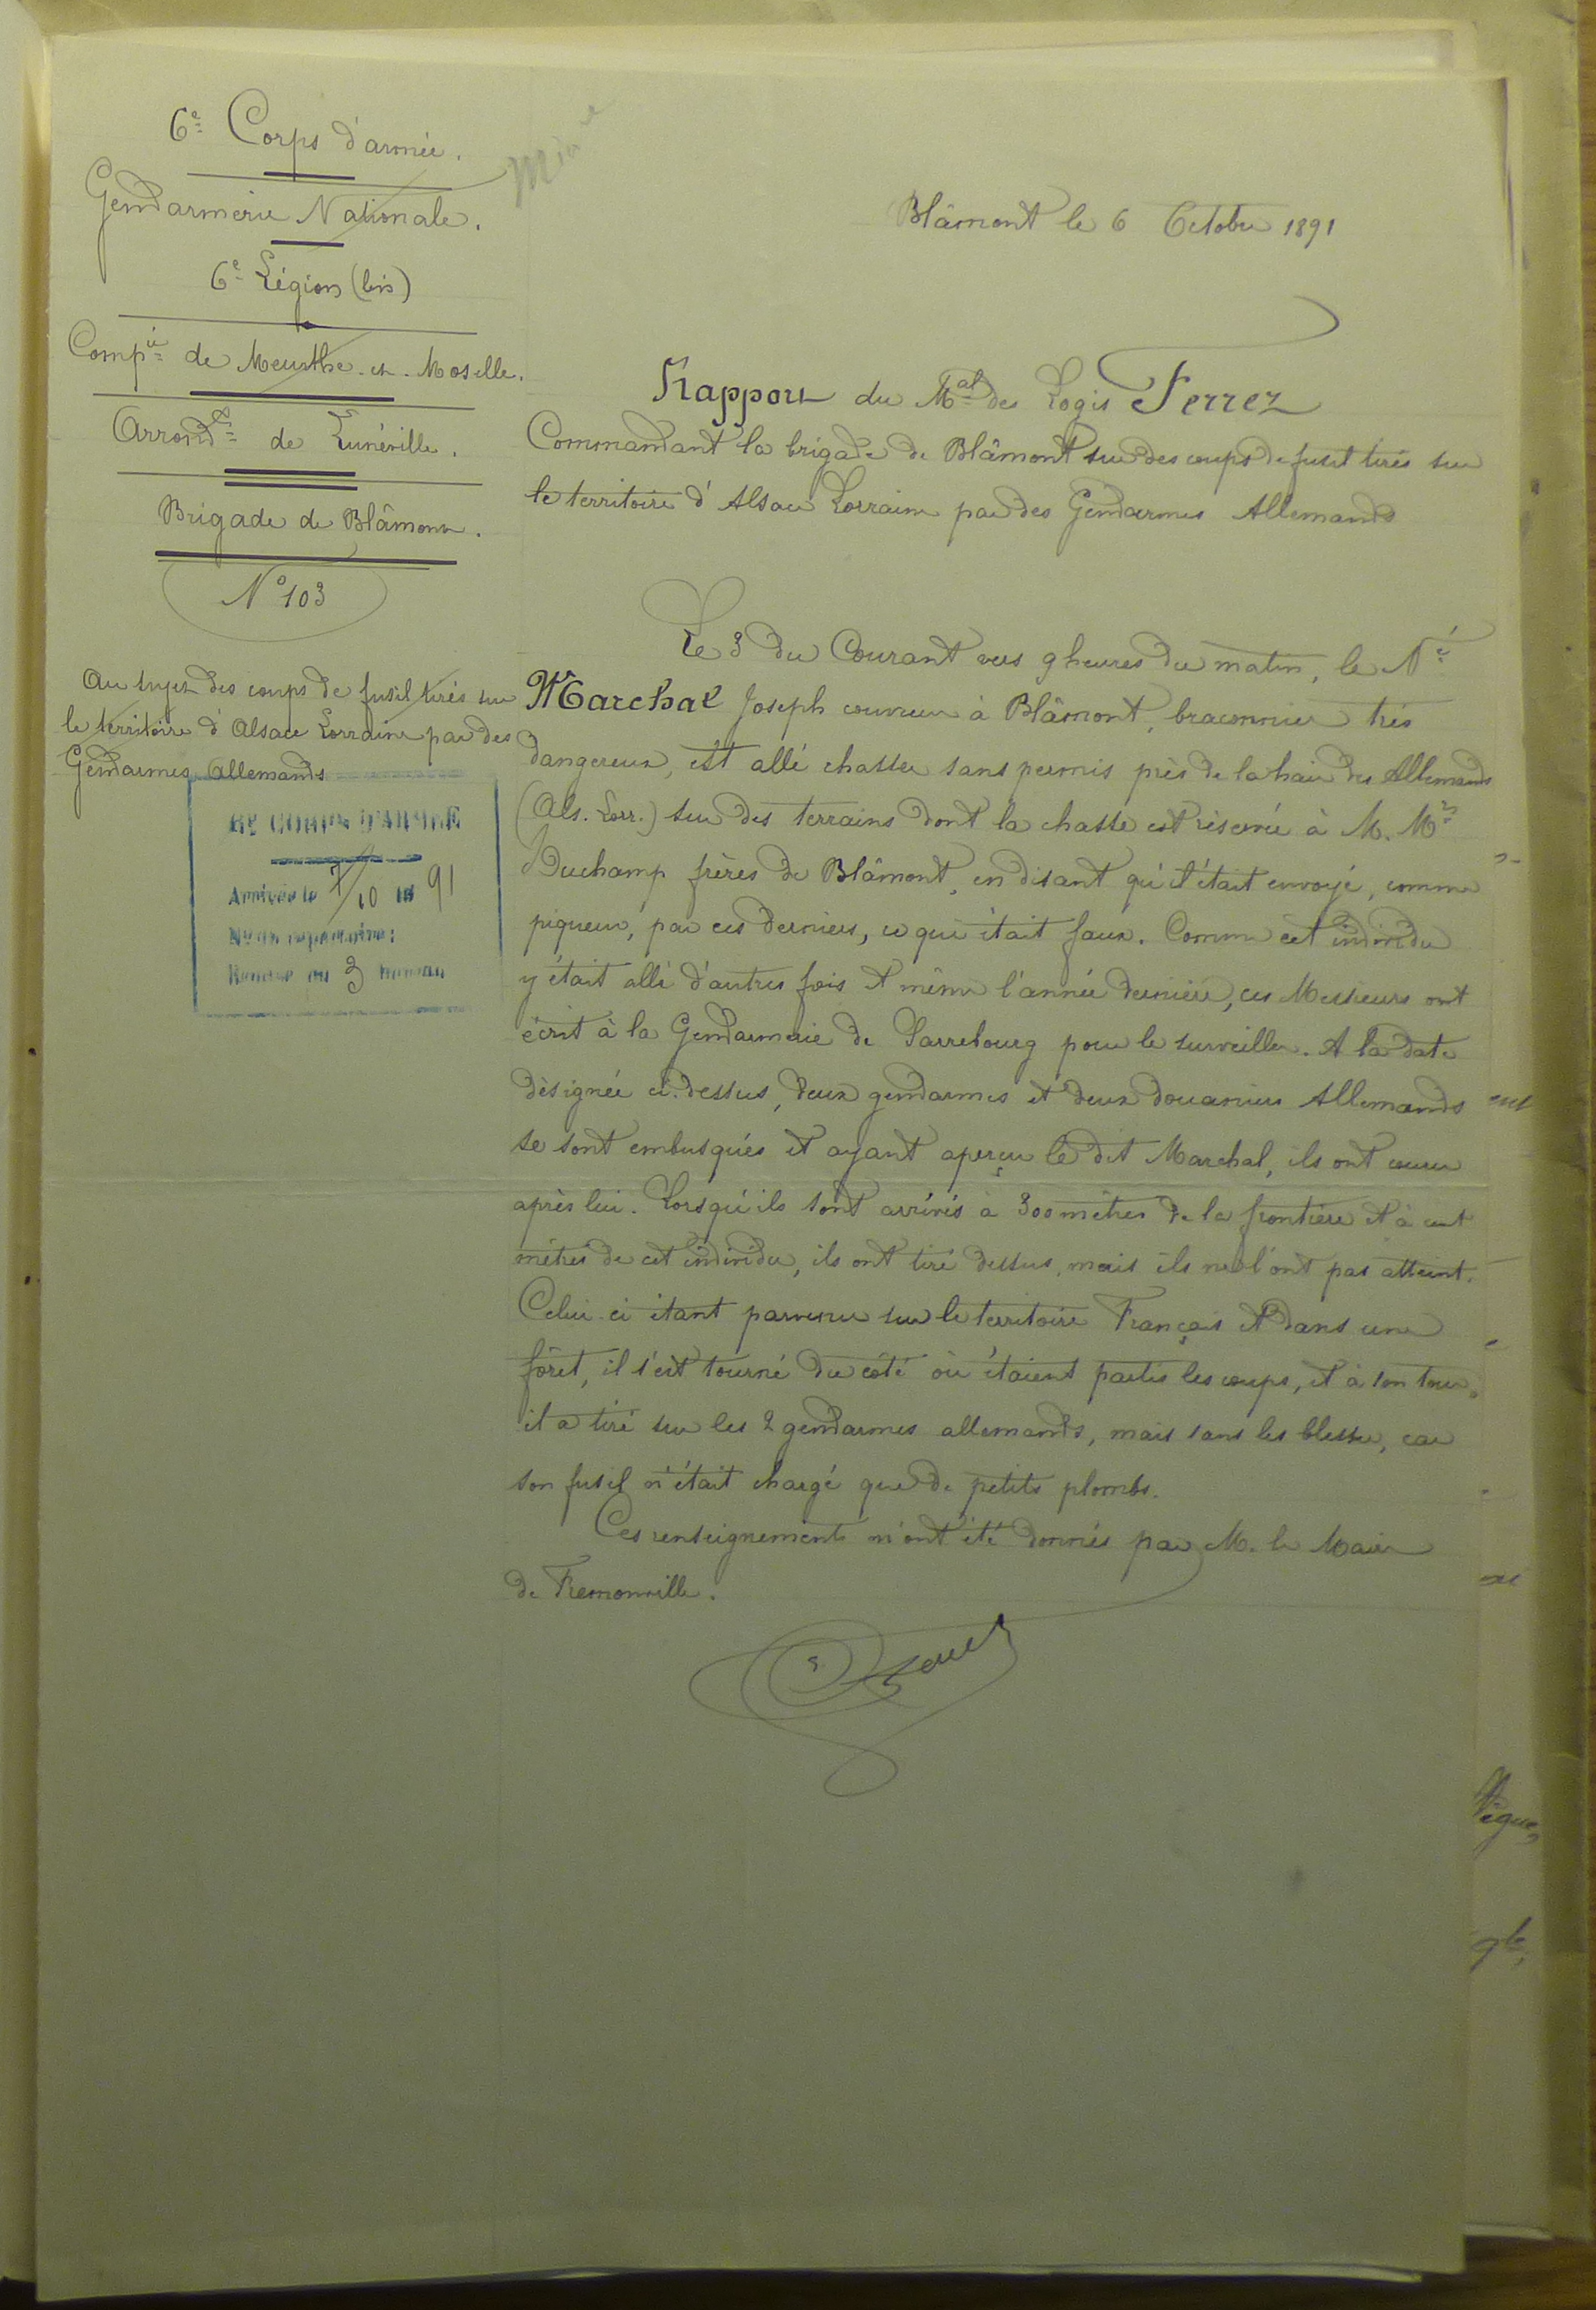 6e Corps d'armée.
Gendarmerie Nationale.
6e Légion (bis)
Compie de Meurthe-et-Moselle.
Arrondt de Lunéville.
Brigade de Blâmont.
N° 103
Au sujet des coups de fusil tirés sur
le territoire d'Alsace Lorraine par des
Gendarmes Allemands
6e CORPS D'ARMÉE
Arrivée le 7/10 18 91
No du répertoire:
Bureau
3
Blâmont le 6 Octobre 1891
Rapport du Mal des Logis Ferrez
Commandant la brigade de Blâmont sur des coups de fusil tirés sur
le territoire d'Alsace Lorraine par des Gendarmes Allemands
Le 3 du Courant vers 9 heures du matin, le Né
Marchal Joseph couvreur à Blâmont, braconnier très
dangereux, est allé chasser sans permis près de la haie des Allemands
(Als. Lorr.) sur des terrains dont la chasse est réservée à M. Mrs
Duchamp frères de Blâmont, en disant qu'il était envoyé, comme
piqueur, par ces derniers, ce qui était faux. Comme cet individu
y était allé d'autres fois et même l'année dernière, ces Messieurs ont
écrit à la Gendarmerie de Sarrebourg pour le surveiller. A la date
désignée ci-dessus, deux gendarmes et deux douaniers Allemands
se sont embusqués et ayant aperçu le dit Marchal, ils ont couru
après lui. Lorsqu'ils sont arrivés à 300 mètres de la frontière et à cent
mètres de cet individu, ils ont tiré dessus, mais ils ne l'ont pas atteint.
Celui-ci étant parvenu sur le territoire Français et dans une
forêt, il s'est tourné du côté où étaient partis les coups, et à son tour,
il a tiré sur les 2 gendarmes allemands, mais sans les blesser, car
son fusil n'était chargé que de petits plombs.
Ces renseignements m'ont été donnés par M. le Maire
de Fremonville.
Ferrez